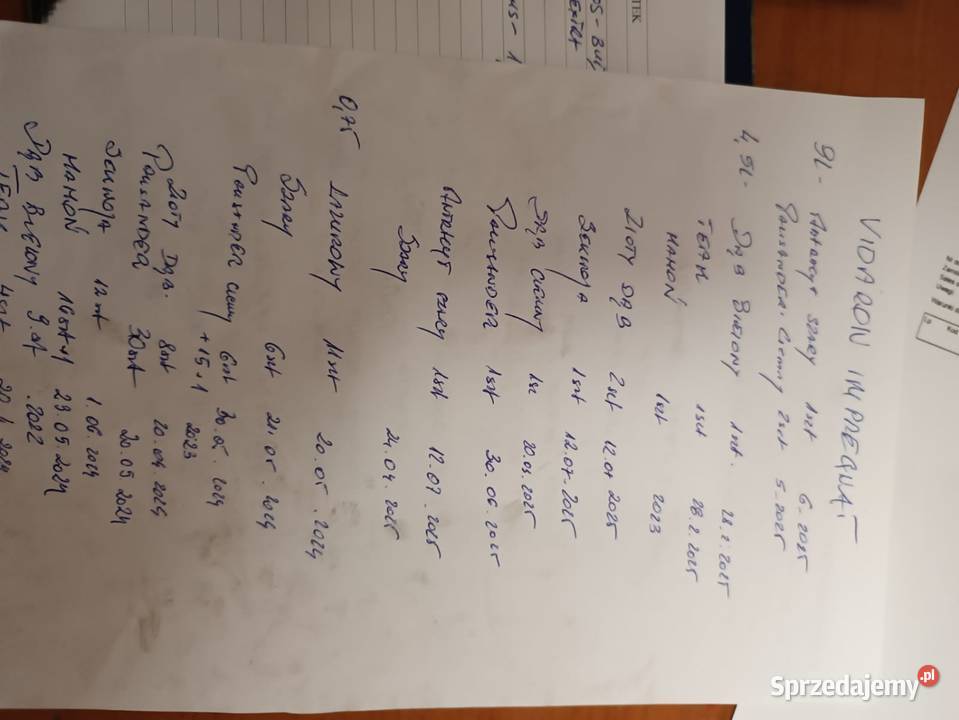 VIDARON IMPREGNAT
9L - Antracyt szary 1szt 6.2025
Palisander Ciemny 2szt 5.2025
4,5L - Dąb Bielony 1szt. 28.2.2025
TEAK 1szt 28.2.2025
MAHOŃ 1szt 2023
ZŁOTY DĄB 2szt 12.07.2025
Sekwoja 1szt 12.07.2025
Dąb Ciemny 1sz 20.03.2025
PALISANDER 1szt 30.06.2025
Antracyt szary 1szt 12.07.2025
Szary 24.04.2025
0,75 11szt 20.05.2024
Szary 6szt 21.05.2024
Palisander ciemny 6szt 30.05.2024
+15+1 2023
Złoty Dąb. 8szt 20.04.2024
Palisander 30szt 20.05.2024
Sekwoja 12szt 1.06.2024
MAHOŃ 16szt+1 29.05.2024
Dąb BIELONY 9szt .2022
TEAK 4szt
PS - BUK
EXTRA
TEK
Sprzedajemy.pl